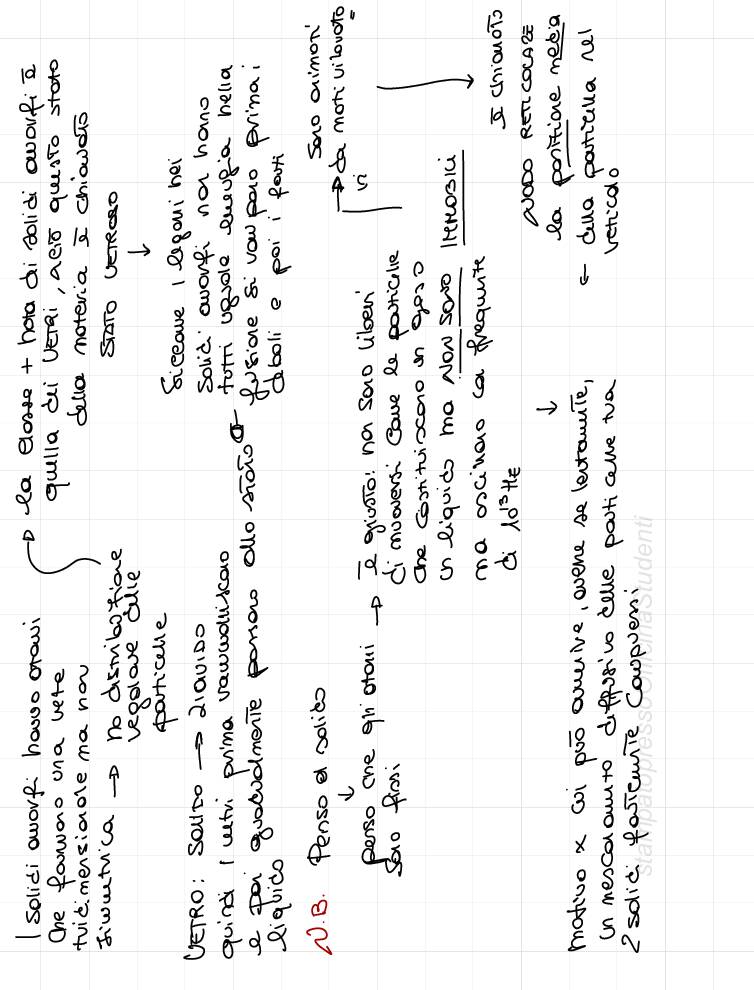 I solidi amorfi hanno atomi
che formano una rete
tridimensionale ma non
simmetrica → no distribuzione
regolare delle
particelle
→ la classe + nota di solidi amorfi è
quella dei vetri, xciò questo stato
della materia è chiamato
STATO VETROSO
↓
Siccome i legami nei
solidi amorfi non hanno
tutti uguale energia nella
fusione si rompono prima i
deboli e poi i forti
VETRO: SOLIDO → LIQUIDO
quindi i vetri prima rammolliscono
e poi gradualmente passano allo stato
liquido
N.B. Penso al solido
↓
penso che gli atomi
sono fissi
→ è giusto: non sono liberi
di muoversi come le particelle
che costituiscono un gas o
un liquido ma NON SONO IMMOBILI
ma oscillano con frequenze
di 10¹³ Hz
→ Sono animati
da moti vibratori
→ È chiamato
NODO RETICOLARE
la posizione media
della particella nel
reticolo
←
↓
motivo x cui può avvenire, anche se lentamente,
un mescolamento diffusivo delle particelle tra
2 solidi fortemente compressi
stampatopressoOfficinaStudenti